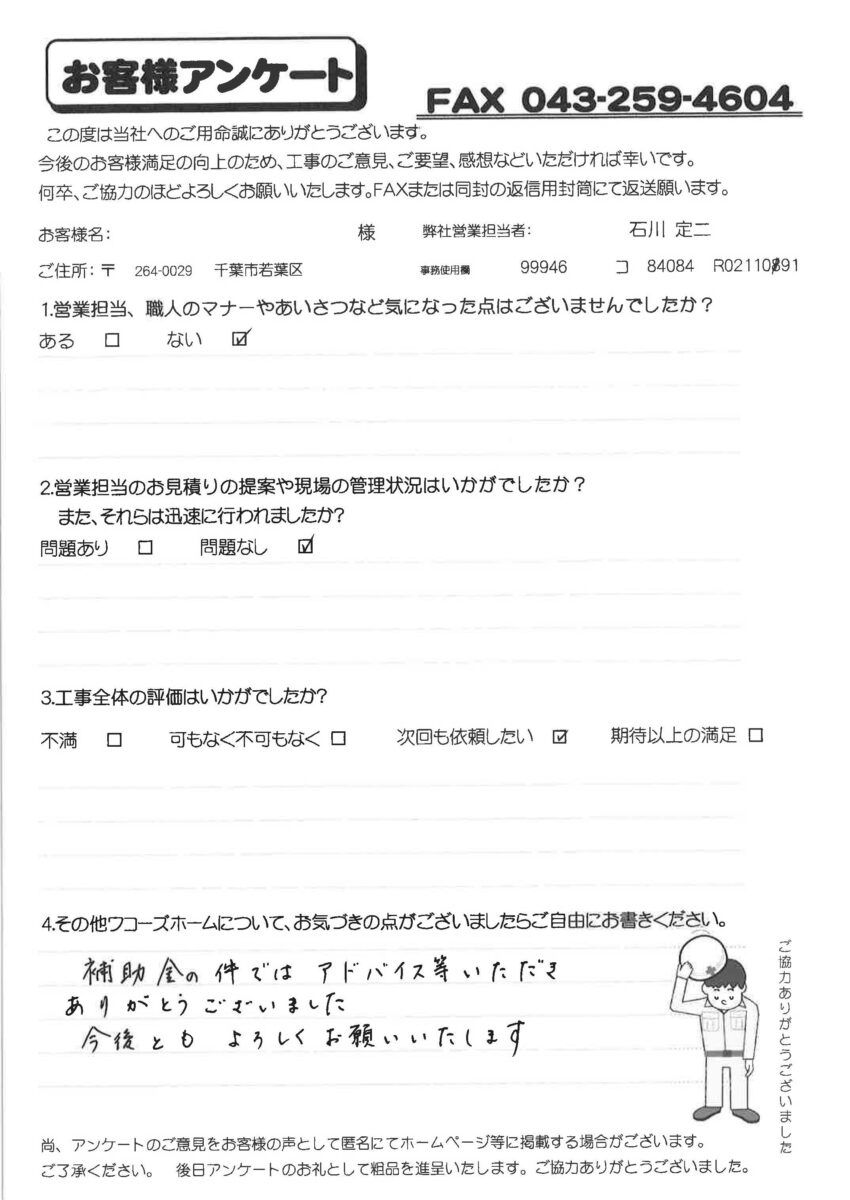 お客様アンケート
FAX 043-259-4604
この度は当社へのご用命誠にありがとうございます。
今後のお客様満足の向上のため、工事のご意見、ご要望、感想などいただければ幸いです。
何卒、ご協力のほどよろしくお願いいたします。FAXまたは同封の返信用封筒にて返送願います。
お客様名: 様 弊社営業担当者: 石川 定二
ご住所:〒 264-0029 千葉市若葉区 事務使用欄 99946 コ 84084 R02110891
1.営業担当、職人のマナーやあいさつなど気になった点はございませんでしたか?
ある □ ない ☑
2.営業担当のお見積りの提案や現場の管理状況はいかがでしたか?
また、それらは迅速に行われましたか?
問題あり □ 問題なし ☑
3.工事全体の評価はいかがでしたか?
不満 □ 可もなく不可もなく □ 次回も依頼したい ☑ 期待以上の満足 □
4.その他ワコーズホームについて、お気づきの点がございましたらご自由にお書きください。
補助金の件ではアドバイス等いただき
ありがとうございました
今後とも よろしくお願いいたします
ご協力ありがとうございました
尚、アンケートのご意見をお客様の声として匿名にてホームページ等に掲載する場合がございます。
ご了承ください。 後日アンケートのお礼として粗品を進呈いたします。ご協力ありがとうございました。